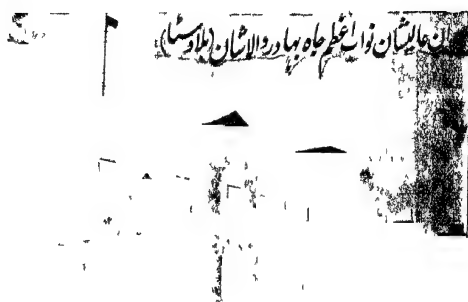 ن عالیشان نواب اعظم جاہ بہادر والاشان (بلاوسٹا)